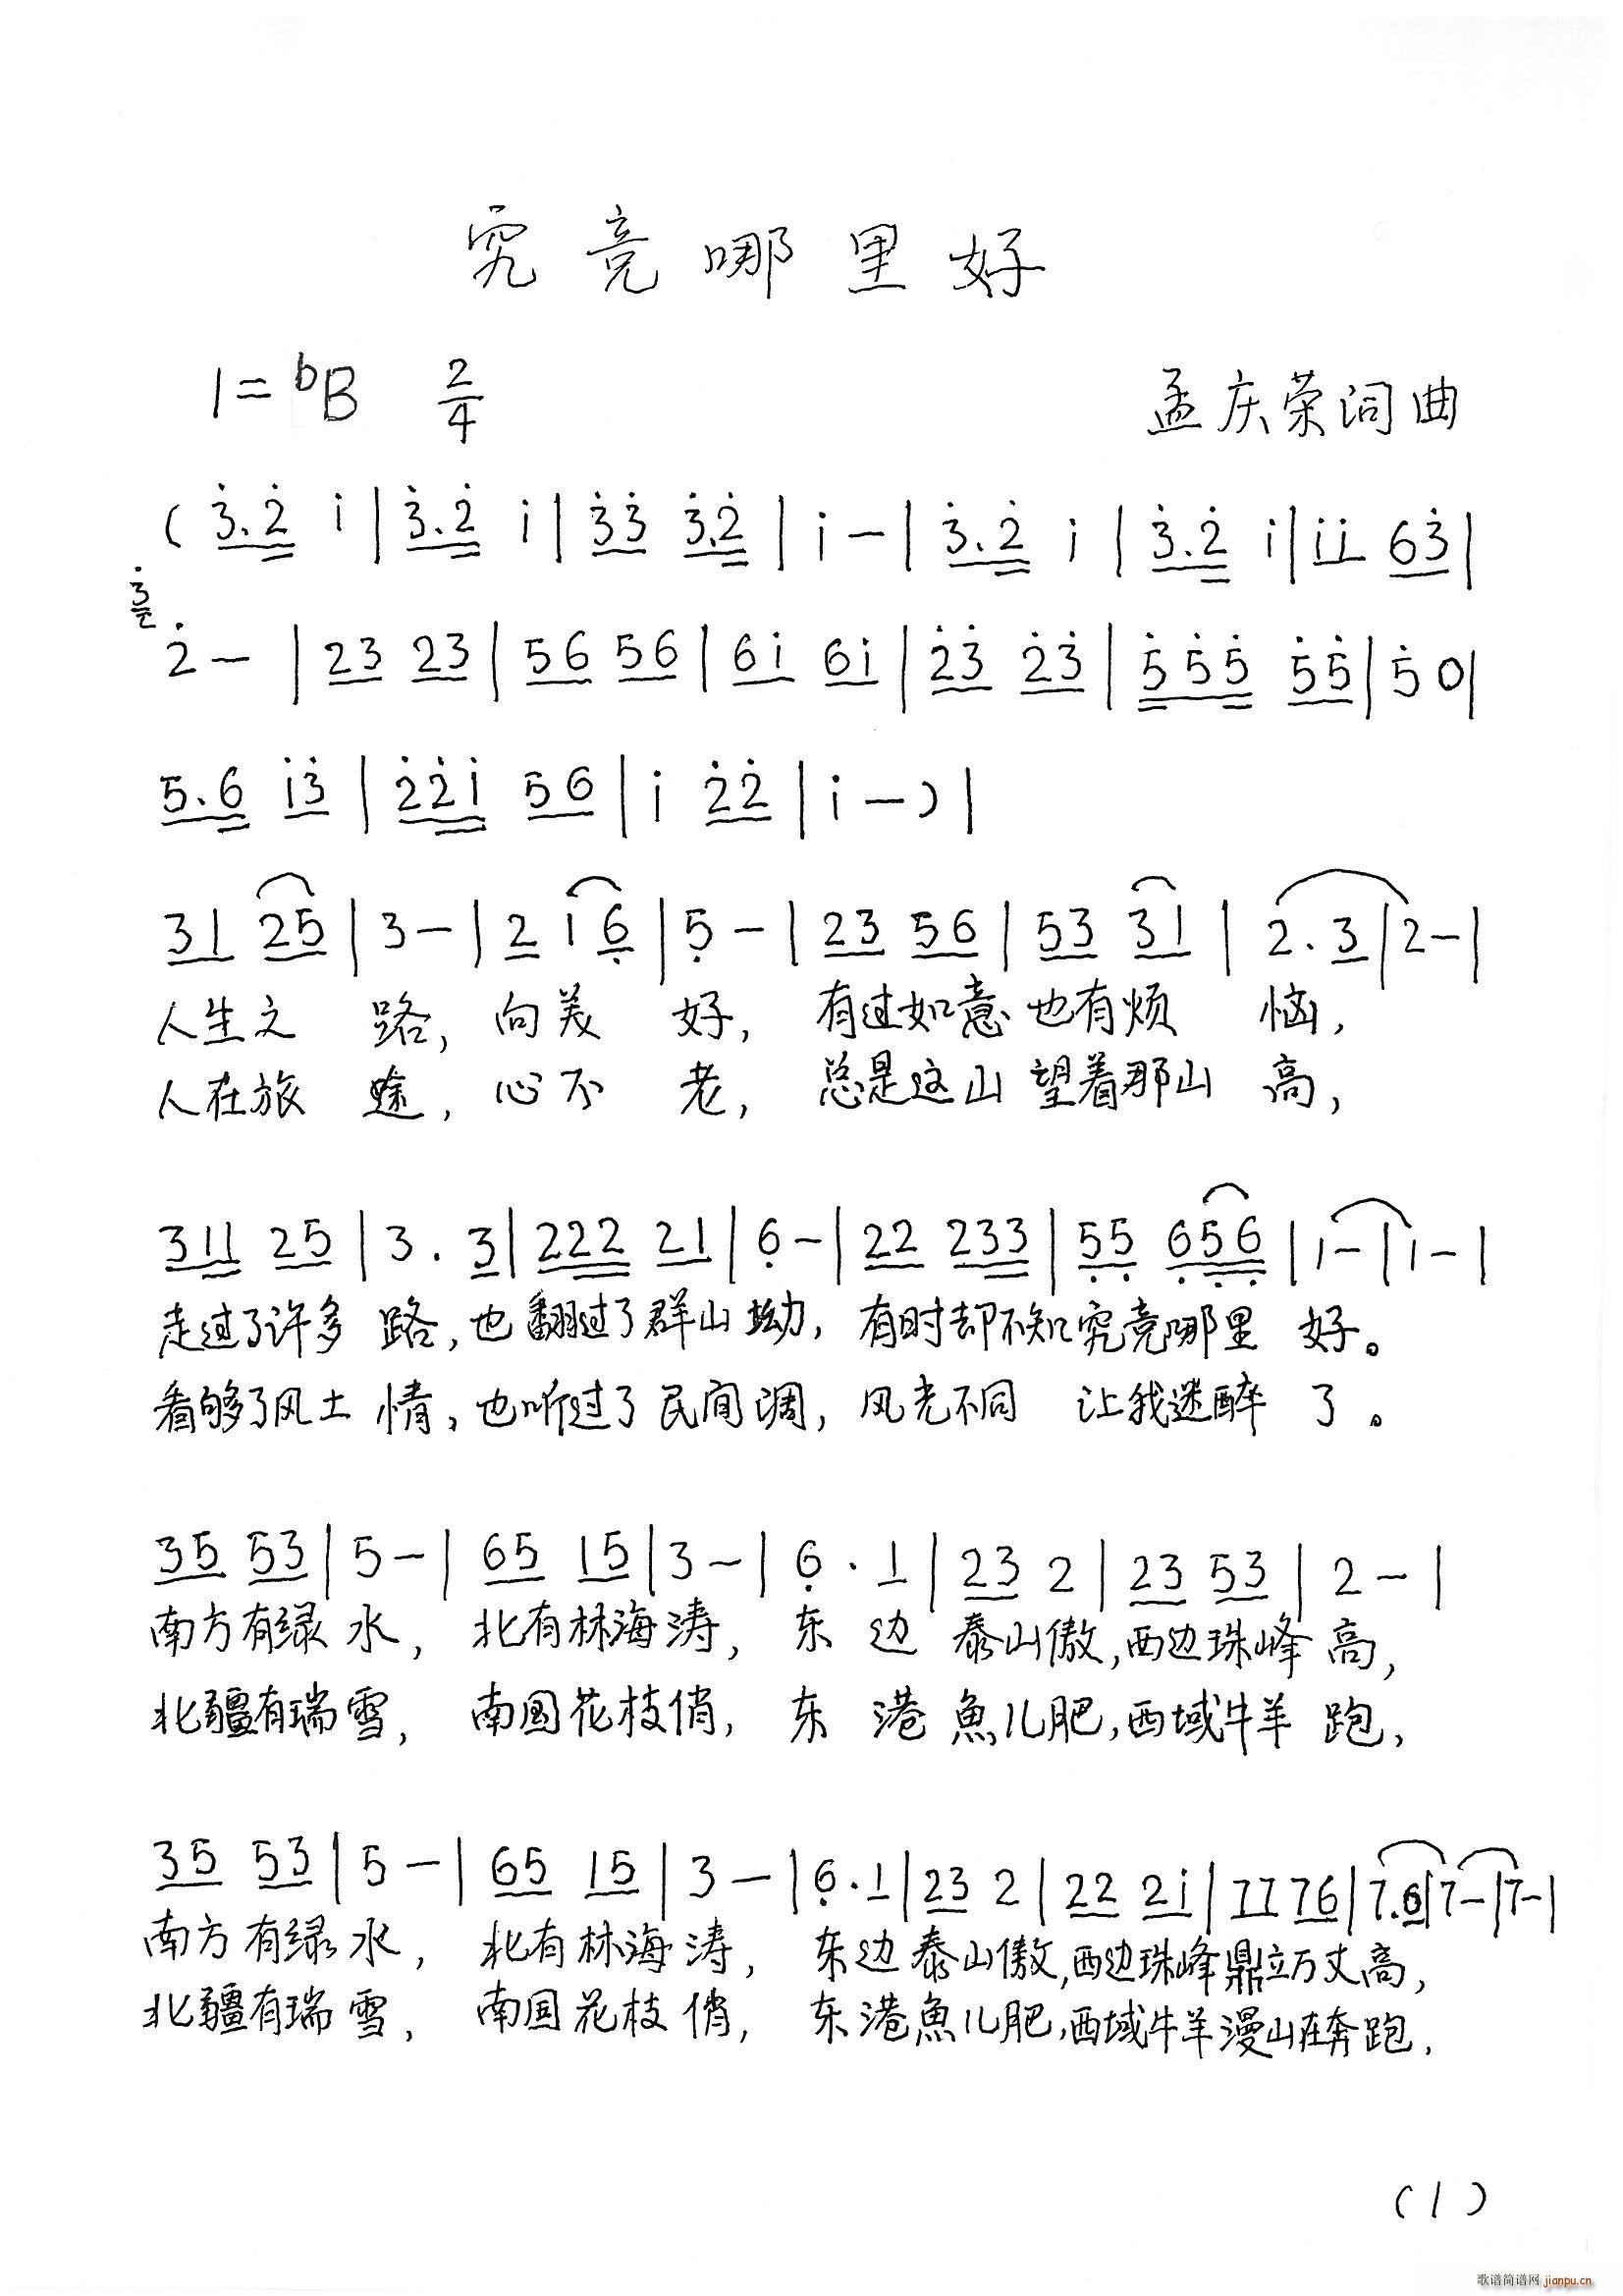 究竟哪里好
1=bB 2/4
孟庆荣词曲
(3.2 i|3.2 i|33 3.2|i-|3.2 i|3.2 i|ii 63|
3
2-|23 23|56 56|6i 6i|23 23|555 55|50|
5.6 i3|22i 56|i 22|i-)|
31 25|3-|2 1 6|5-|23 56|53 31|2.3|2-|
人生之路,向美好,有过如意也有烦恼,
人在旅途,心不老,总是这山望着那山高,
311 25|3.3|222 21|6-|22 233|55 656|1-|1-|
走过了许多路,也翻过了群山坳,有时却不知究竟哪里好。
看够了风土情,也听过了民间调,风光不同 让我迷醉了。
35 53|5-|65 15|3-|6.1|23 2|23 53|2-|
南方有绿水,北有林海涛,东边泰山傲,西边珠峰高,
北疆有瑞雪,南国花枝俏,东港魚儿肥,西域牛羊跑,
35 53|5-|65 15|3-|6.1|23 2|22 2i|77 76|7.6|7-|7-|
南方有绿水,北有林海涛,东边泰山傲,西边珠峰鼎立万丈高,
北疆有瑞雪,南国花枝俏,东港魚儿肥,西域牛羊漫山在奔跑.
(1)
歌谱简谱网 jianpu.cn